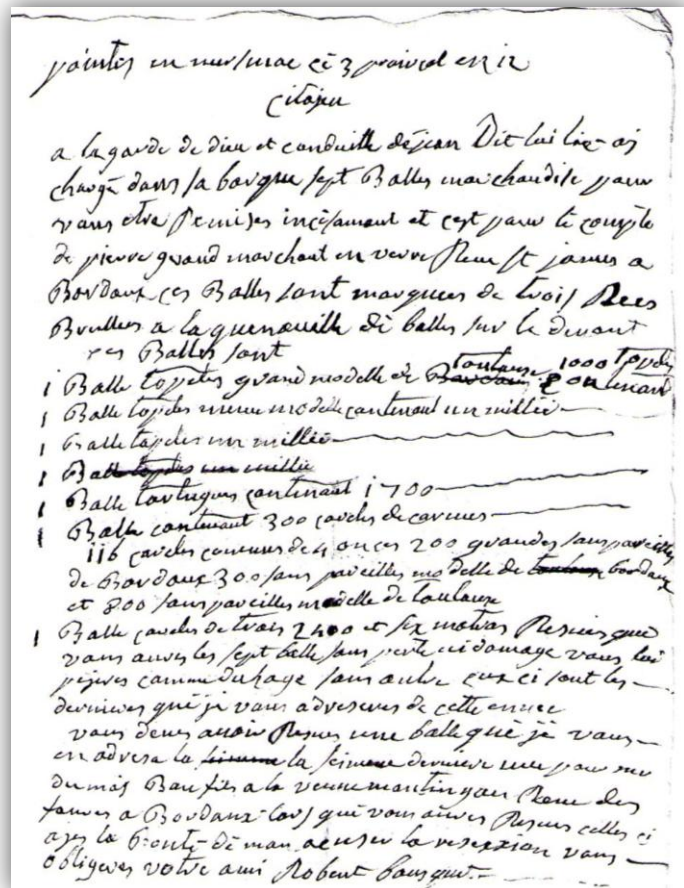 pointis en mursmac ce 3 prairial en 12
citojen
a la garde de dieu et conduitte déjean Dit lui
chargé dans sa barque sept Balles marchandise pour
vous etre Remises incésament et cest pour le compte
de pierre gerand marchant en verre Reue St james a
Bordaux ces Balles sont marquees de trois Rees
a la quenouille di balles sur le devant
ces Balles sont
1 Balle topetes grand modelle de Bordaux toulouse contenant 1000 topetes
1 Balle topetes meme modelle contenant un millie
1 Balle topetes un millie
1 Balle topetes un millie
1 Balle tortugues contenant 1700
1 Balle contenant 300 caroles de carmes
116 caroles comunes de 4 onces 200 grandes sans pareilles
de Bordaux 300 sans pareilles modelle de toulouse bordaux
et 800 sans pareilles modelle de toulouse
1 Balle caroles de trois 2400 et six matras Resues que
vous aures les sept balle sans perte ni domage vous lui
pajeres comme dusage sans autre ceux ci sont les
dernieres que je vous adreseres de cette annee
vous deves avoir Resues une balle que je vous
en adresa la semene la semene derniere une pour
dumas Baufils a la veuve Reue des
a Bordaux lors que vous aures Resues celles ci
ajes la bonté de man acuser la reseption vous
obligeres votre ami Robert bousquet